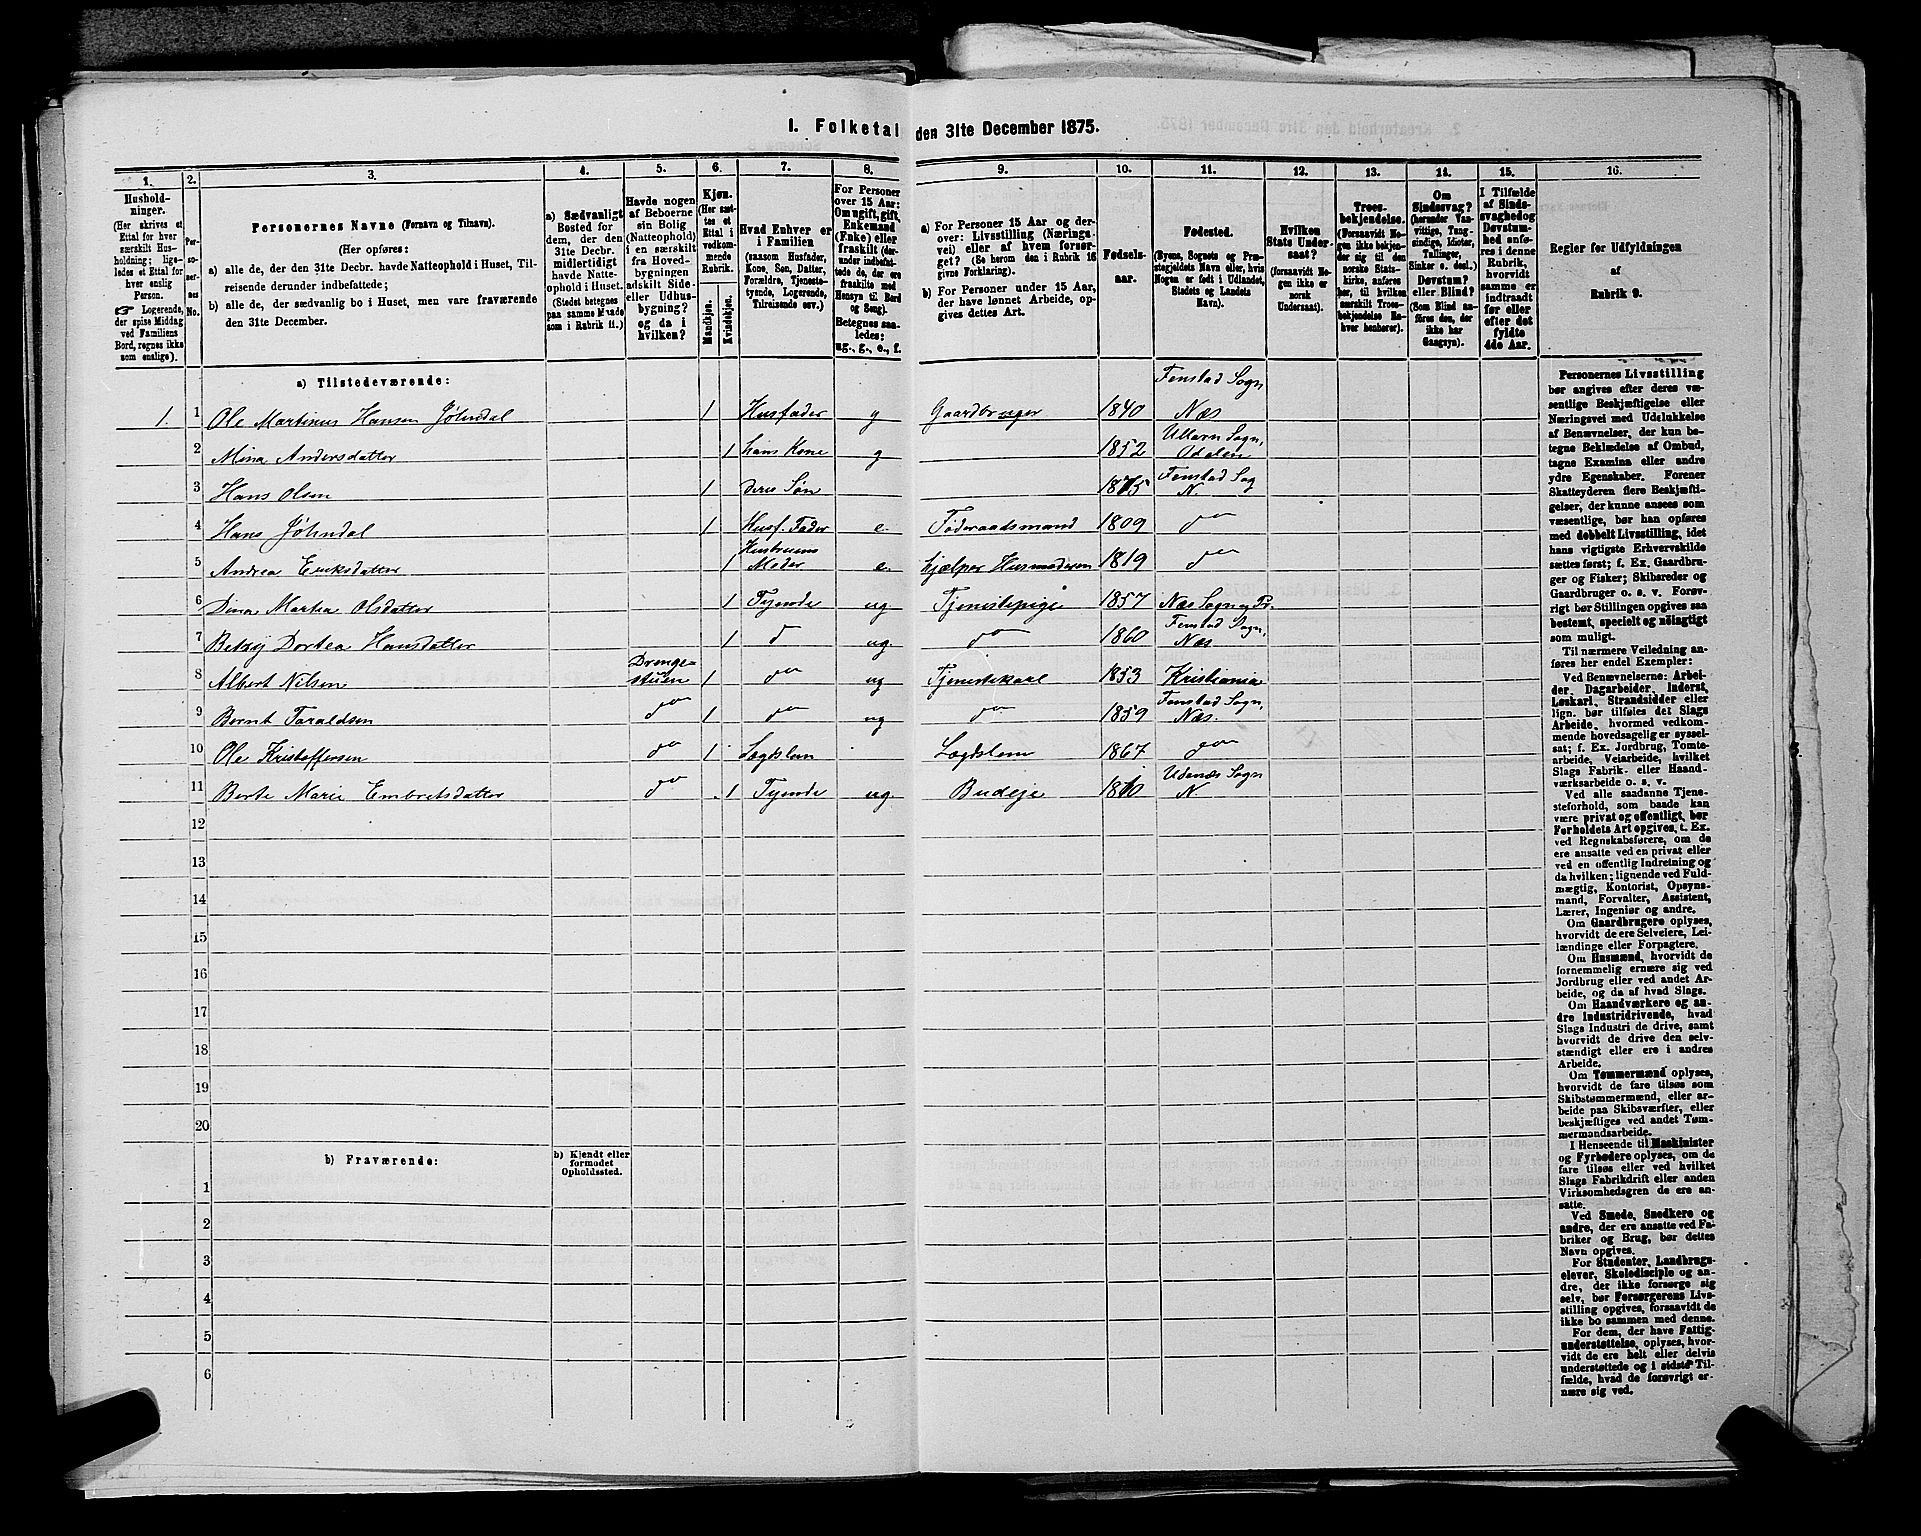 I. Folketal den 31te December 1875.
1. 2. 3. 4. 5. 6. 7. 8. 9. 10. 11. 12. 13. 14. 15. 16.
Hushold-
ninger.
(Her skrives et
Ettal for hver
særskilt Hus-
holdning; lige-
ledes et Ettal for
hver enslig
Person.
☞ Logerende,
der spise Middag
ved Familiens
Bord, regnes ikke
som enslige).
Per-
so-
ner-
nes
No.
Personernes Navne (Fornavn og Tilnavn).
(Her opføres:
a) alle de, der den 31te Decbr. havde Natteophold i Huset, Til-
reisende derunder indbefattede;
b) alle de, der sædvanlig bo i Huset, men vare fraværende
den 31te December.
a) Sædvanligt
Bosted for
dem, der den
31te Decbr.
midlertidigt
havde Natte-
ophold i Huset.
(Stedet betegnes
paa samme Maade
som i Rubrik 11.)
Havde nogen
af Beboerne
sin Bolig
(Natteophold)
i en særskilt
fra Hoved-
bygningen
adskilt Side-
eller Udhus-
bygning?
og da i
hvilken?
Kjøn.
(Her sæt-
tes et
Ettal i
vedkom-
mende
Rubrik.
Mandkjøn.
Kvindekjøn.
Hvad Enhver er
i Familien
(saasom Husfader,
Kone, Søn, Datter,
Forældre, Tjeneste-
tyende, Logerende,
Tilreisende osv.)
For Personer
over 15 Aar:
Om ugift, gift,
Enkemand
(Enke) eller
fraskilt (der-
under indbefat-
tede de, der ere
fraskilte med
Hensyn til Bord
og Seng).
Betegnes saa-
ledes:
ug., g., e., f.
a) For Personer 15 Aar og der-
over: Livsstilling (Nærings-
vei) eller af hvem forsør-
get? (Se herom den i Rubrik 16
givne Forklaring).
b) For Personer under 15 Aar,
der have lønnet Arbeide, op-
gives dettes Art.
Fødsels-
aar.
Fødested.
(Byens, Sognets og Præ-
stegjeldets Navn eller, hvis
Nogen er født i Udlandet,
Stedets og Landets
Navn).
Hvilken
Stats Under-
saat?
(forsaavidt No-
gen ikke er
norsk
Undersaat).
Troes-
bekjendelse.
(Forsaavidt No-
gen ikke bekjen-
der sig til den
norske Stats-
kirke, anføres
her, til hvilken
særskilt Troes-
bekjendelse En-
hver henhører).
Om
Sindssvag?
(herunder Van-
vittige, Tung-
sindige, Idioter,
Tullinger,
Sinker o. desl.)
Døvstum?
eller Blind?
(Som Blind an-
føres den, der
ikke har
Gangsyn).
I Tilfælde
af Sinds-
svaghed og
Døvstum-
hed anfø-
res i denne
Rubrik,
hvorvidt
samme er
indtraadt
før eller
efter det
fyldte
4de Aar.
Regler for Udfyldningen
af
Rubrik 9.
a) Tilstedeværende:
1. 1 Ole Martinus Hansen Jølndal 1 Husfader g Gaardbruger 1840 Fenstad Sogn Næs
2 Mina Andersdatter 1 hans Kone g 1852 Ullern Sogn, Odalen
3 Hans Olsen 1 deres Søn 1875 Fenstad Sog N.
4 Hans Jølndal 1 Husf. Fader e. Føderaadsmand 1809 do
5 Andrea Eriksdatter 1 Hustruens Moder e. hjælper Husmoderen 1819 do
6 Dina Martea Olsdatter 1 Tyende ug Tjenestepige 1857 Næs Sogn og Pr.
7 Betzy Dortea Hansdatter 1 d ug. do 1860 Fenstad Sogn, Næs.
8 Albert Nilsen Drenge-stuen 1 do ug Tjenestekarl 1853 Kristiania
9 Bernt Taraldsen do 1 do ug do 1859 Fenstad Sogn, Næs.
10 Ole Kristoffersen do 1 Lægdslem Lægdslem 1867 do
11 Berte Marie Embretsdatter do 1 Tyende ug. Budeje 1810 Udenæs Sogn N.
12
13
14
15
16
17
18
19
20
b) Fraværende:
b) Kjendt eller
formodet
Opholdssted.
1
2
3
4
5
6
Personernes Livsstilling
bør angives efter deres væ-
sentlige Beskjæftigelse eller
Næringsvei med Udelukkelse
af Benævnelser, der kun be-
tegne Beklædelse af Ombud,
tagne Examina eller andre
ydre Egenskaber. Forener
Skatteyderen flere Beskjæfti-
gelser, der kunne ansees som
væsentlige, bør han opføres
med dobbelt Livsstilling, idet
hans vigtigste Erhvervskilde
sættes først; f. Ex. Gaardbru-
ger og Fisker; Skibsreder og
Gaardbruger o. s. v. Forøv-
rigt bør Stillingen opgives saa
bestemt, specielt og nøiagtigt
som muligt.
Til nærmere Veiledning an-
føres her endel Exempler:
Ved Benævnelserne: Arbei-
der, Dagarbeider, Inderst,
Løskarl, Strandsidder eller
lign. bør tilføies det Slags
Arbeide, hvormed vedkom-
mende hovedsagelig er syssel-
sat; f. Ex. Jordbrug, Tomte-
arbeide, Veiarbeide, hvilket
Slags Fabrik- eller Haand-
værksarbeide o. s. v.
Ved alle saadanne Tjene-
steforhold, som baade kan
være privat og offentligt, bør
Forholdets Art opgives, t. Ex.
ved Regnskabsførere, om de
ere ansatte ved en privat eller
ved en offentlig Indretning og
da hvilken; lignende ved Fuld-
mægtig, Kontorist, Opsyns-
mand, Forvalter, Assistent,
Lærer, Ingeniør og andre.
Om Gaardbrugere oplyses,
hvorvidt de ere Selveiere, Lei-
lændinge eller Forpagtere.
Om Husmænd, hvorvidt de
fornemmelig ernære sig ved
Jordbrug eller ved andet Ar-
beide, og da af hvad Slags.
Om Haandværkere og an-
dre Industridrivende, hvad
Slags Industri de drive, samt
hvorvidt de drive den selv-
stændigt eller ere i andres
Arbeide.
Om Tømmermænd oplyses,
hvorvidt de fare tilsøs som
Skibstømmermænd, eller ar-
beide paa Skibsværfter, eller
beskjæftiges ved andet Tøm-
mermandsarbeide.
I Henseende til Maskinister
og Fyrbødere oplyses, om de
fare tilsøs eller ved hvilket
Slags Fabrikdrift eller anden
Virksomhedsgren de ere an-
satte.
Ved Smede, Snedkere og
andre, der ere ansatte ved Fa-
briker og Brug, bør dettes
Navn opgives.
For Studenter, Landbrugs-
elever, Skoledisciple og an-
dre, der ikke forsørge sig
selv, bør Forsørgerens Livs-
stilling opgives, forsaavidt de
ikke bo sammen med denne.
For dem, der have Fattig-
understøttelse, oplyses, hvor-
vidt de ere helt eller delvis
understøttede og i sidste Til-
fælde, hvad de forøvrigt er-
nære sig ved.